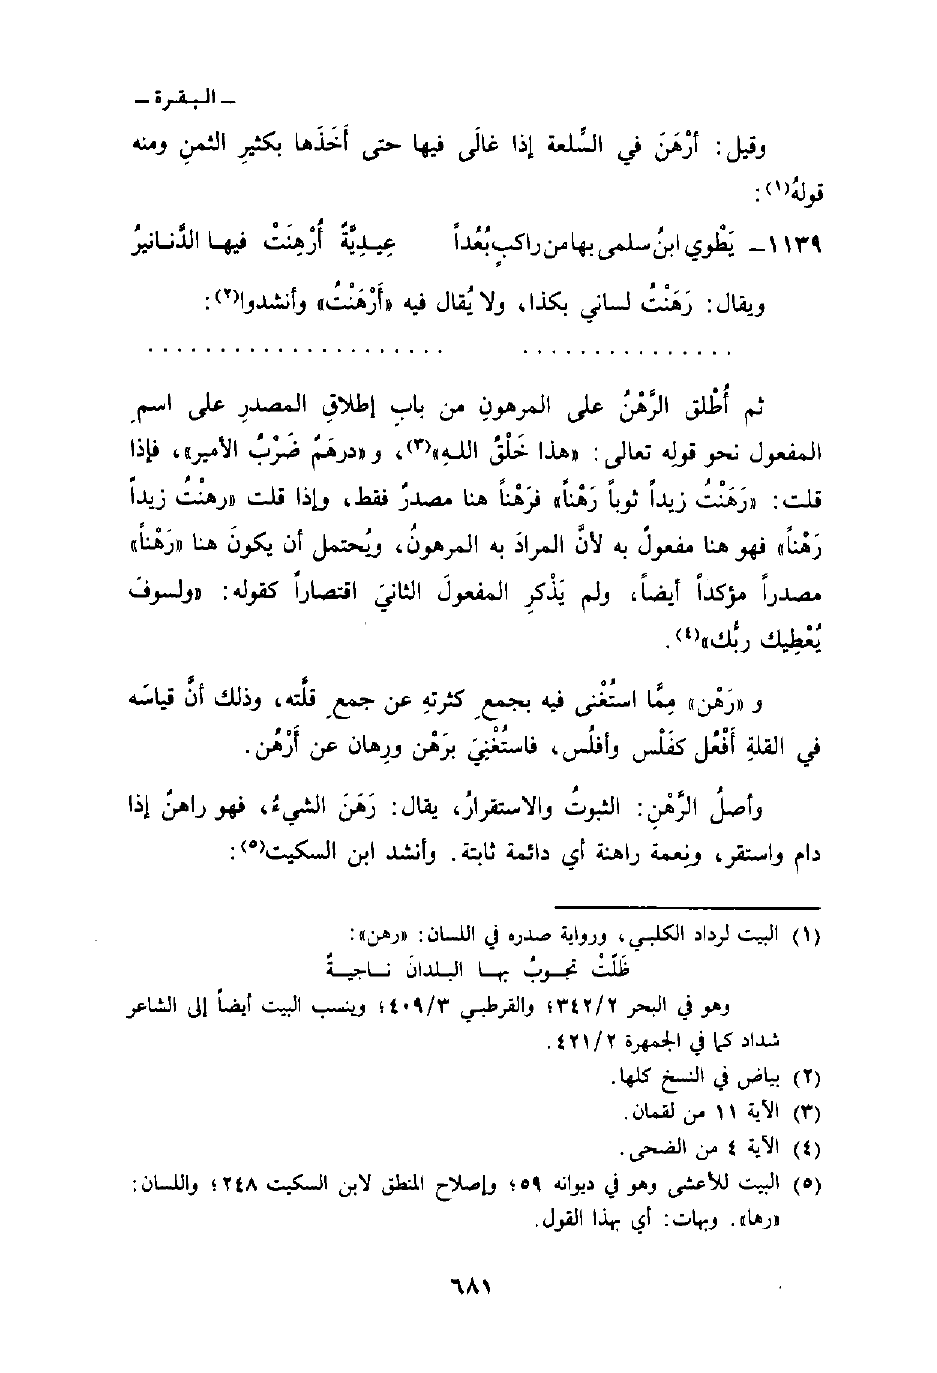 ـ البقرة ـ
وقيل: أَرْهَنَ في السِّلعة إذا غالَى فيها حتى أَخَذَها بكثيرِ الثمنِ ومنه
قولهُ(١):
١١٣٩ـ يَطْوي ابنُ سلمى بها من راكبٍ بُعُداً    عِيـدِيَّةً أُرْهِنَتْ فيهـا الدَّنـانيرُ
ويقال: رَهَنْتُ لساني بكذا، ولا يُقال فيه «أَرْهَنْتُ» وأنشدوا(٢):
. . . . . . . . . . . . . . .    . . . . . . . . . . . . . . . . . . . . .
ثم أُطْلق الرَّهْنُ على المرهونِ من بابِ إطلاقِ المصدرِ على اسمِ
المفعول نحو قوله تعالى: «هذا خَلْقُ اللهِ»(٣)، و «درهَمٌ ضَرْبُ الأمير»، فإذا
قلت: «رَهَنْتُ زيداً ثوباً رَهْناً» فرَهْناً هنا مصدرٌ فقط، وإذا قلت «رهنْتُ زيداً
رَهْناً» فهو هنا مفعولٌ به لأنَّ المرادَ به المرهونُ، ويُحتمل أن يكونَ هنا «رَهْناً»
مصدراً مؤكداً أيضاً، ولم يَذْكرِ المفعولَ الثانيَ اقتصاراً كقوله: «ولسوفَ
يُعْطِيك ربُّك»(٤).
و «رَهْن» مِمَّا استُغْنى فيه بجمعِ كثرتهِ عن جمعِ قلَّته، وذلك أنَّ قياسَه
في القلةِ أَفْعُل كفَلْس وأفلُس، فاستُغْنِيَ برَهْن ورِهان عن أَرْهُن.
وأصلُ الرَّهْنِ: الثبوتُ والاستقرارُ، يقال: رَهَنَ الشيءُ، فهو راهنٌ إذا
دام واستقر، ونِعمة راهنة أي دائمة ثابتة. وأنشد ابن السكيت(٥):
(١) البيت لرداد الكلبي، ورواية صدره في اللسان: «رهن»:
ظَلَّتْ تجـوبُ بهـا البلدانَ نـاجيـةٌ
وهو في البحر ٣٤٢/٢؛ والقرطبي ٤٠٩/٣؛ وينسب البيت أيضاً إلى الشاعر
شداد كما في الجمهرة ٤٢١/٢.
(٢) بياض في النسخ كلها.
(٣) الآية ١١ من لقمان.
(٤) الآية ٤ من الضحى.
(٥) البيت للأعشى وهو في ديوانه ٥٩؛ وإصلاح المنطق لابن السكيت ٢٤٨؛ واللسان:
«رها». وبهات: أي بهذا القول.
٦٨١